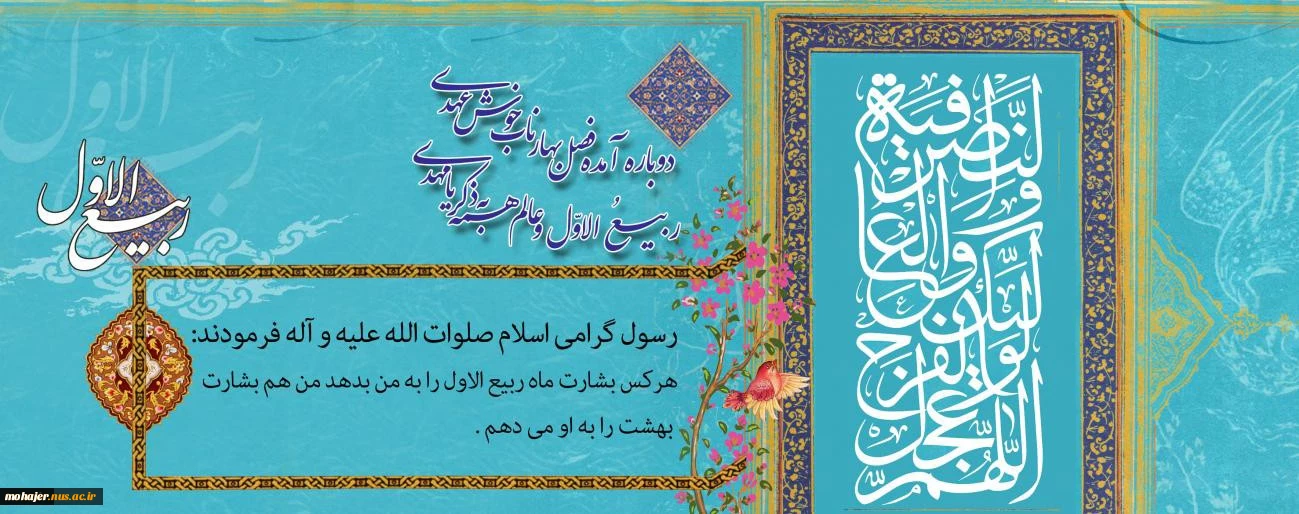 دوباره آمده فصل بهار ناب خوش عهدی
ربیعُ الاوّل و عالم همه به ذکر یا مهدی
ربیع الاوّل
رسول گرامی اسلام صلوات الله علیه و آله فرمودند:
هرکس بشارت ماه ربیع الاول را به من بدهد من هم بشارت
بهشت را به او می دهم .
اللّهُمَّ عجِّل لولیِّکَ الفرج
والعافیة والنّصر
ربیع الاوّل
mohajer.nus.ac.ir